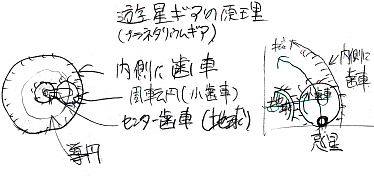 遊星ギアの原理
(プラネタリウムギア)
内側に歯車
周転円(小歯車)
センター歯車(地球)
導円
拡大
内側に
歯車
小歯車
惑星